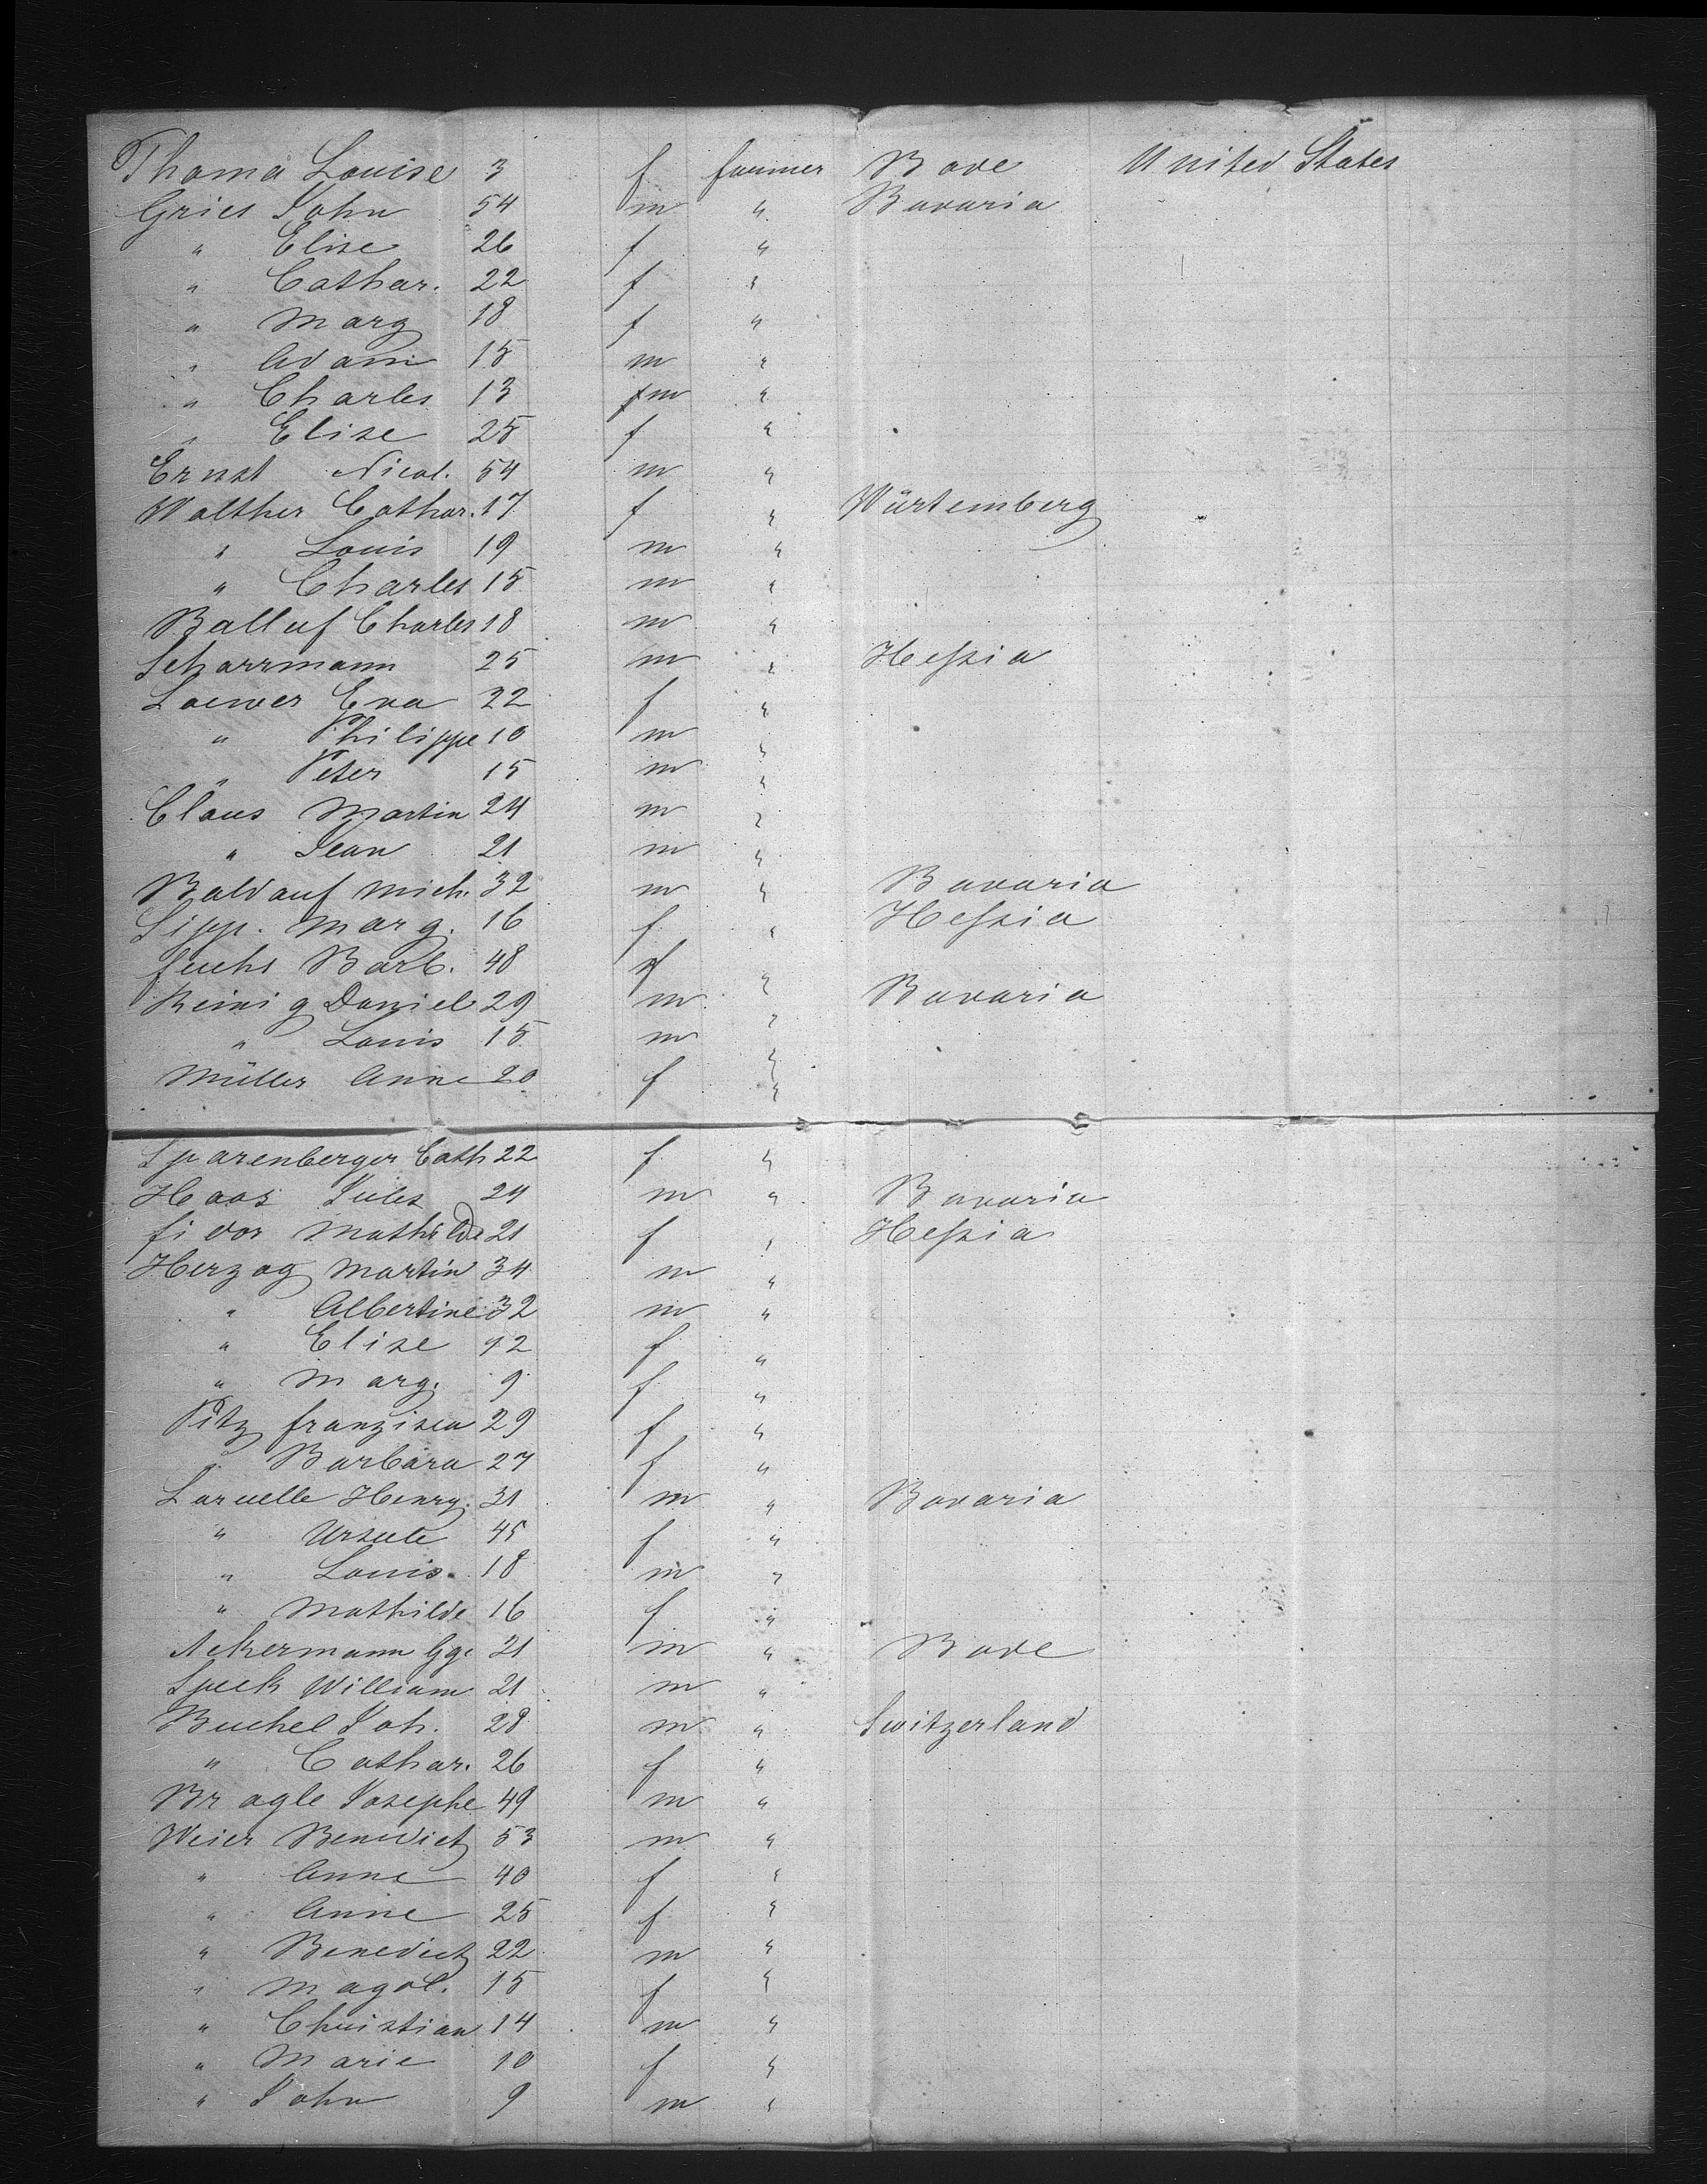 Thoma Louise 3 f farmer Bade United States
Gries John 54 m " Bavaria
" Elise 26 f "
" Cathar. 22 f "
" Marg 18 f "
" Adam 15 m "
" Charles 13 m "
" Elise 25 f "
Ernst Nicol. 54 m "
Walther Cathar. 17 f " Würtemberg
" Louis 19 m "
" Charles 15 m "
Balluf Charles 18 m "
Scharrmann 25 m " Hessia
Loewer Eva 22 f "
" Philippe 10 m "
" Peter 15 m "
Claus Martin 24 m "
" Jean 21 m "
Baldauf Mich. 32 m " Bavaria
Sipp. Marg. 16 f " Hessia
Fuchs Barb. 48 f "
Reinig Daniel 29 m " Bavaria
" Louis 15 m "
Müller Anne 20 f "
Sparenberger Cath 22 f "
Haas Jules 24 m " Bavaria
Fidor Mathilde 21 f " Hessia
Herzog Martin 34 m "
" Albertine 32 m "
" Elise 12 f "
" Marg. 9 f "
Pitz Franzisca 29 f "
" Barbara 27 f "
Laruelle Henry. 31 m " Bavaria
" Ursule 45 f "
" Louis. 18 m "
" Mathilde 16 f "
Ackermann Gge 21 m " Bade
Speck William 21 m "
Buchel Joh. 28 m " Switzerland
" Cathar. 26 f "
Bragle Josephe 49 m "
Weier Benedict 53 m "
" Anne 40 f "
" Anne 25 f "
" Benedict 22 m "
" Magdl. 15 f "
" Christian 14 m "
" Marie 10 f "
" John 9 m "